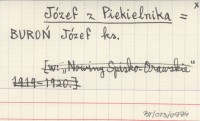 Józef z Piekielnika =
BUROŃ Józef ks.
[w: „Nowiny Spisko-Orawskie"
1919-1920.]